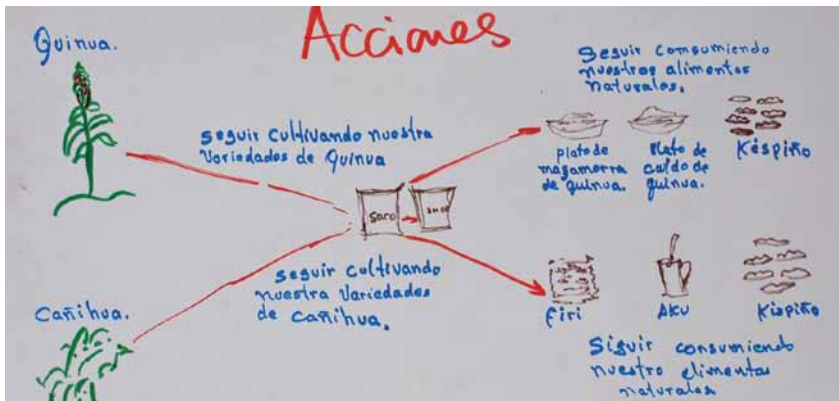 Acciones
Quinua.
seguir cultivando nuestra
Variedades de Quinua
Seguir consumiendo
nuestras alimentos
naturales.
plato de
magamorra
de quinua.
Plato de
caldo de
quinua.
Késpiño
saro
seguir cultivando
nuestra Variedades
de Cañihua.
Cañihua.
Firi
AKu
Kispiño
Siguir consumiendo
nuestro elimentas
naturales